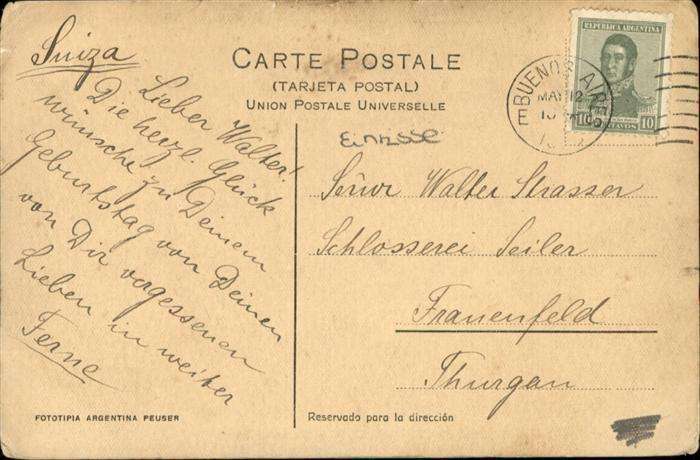 Suiza
CARTE POSTALE
(TARJETA POSTAL)
UNION POSTALE UNIVERSELLE
REPUBLICA ARGENTINA
10 CENTAVOS 10
BUENOS AIRES
MAY 12
Lieber Walter!
Die herzl. Glück
wünsche zu Deinem
Geburtstag von Deinen
von Dir vergessenen
Lieben in weiter
Ferne
Señor Walter Strasser
Schlosserei Seiler
Frauenfeld
Thurgau
FOTOTIPIA ARGENTINA PEUSER
Reservado para la dirección